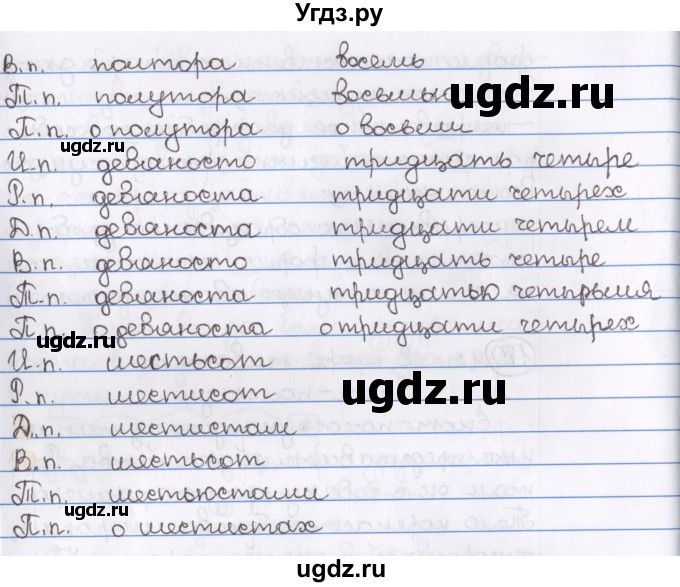 Угдз.ру
В.п. полтора восемь
Т.п. полутора восьмью
П.п. о полутора о восьми
И.п. девяносто тридцать четыре
Р.п. девяноста тридцати четырёх
Д.п. девяноста тридцати четырём
В.п. девяносто тридцать четыре
Т.п. девяноста тридцатью четырьмя
П.п. о девяноста о тридцати четырех
И.п. шестьсот
Р.п. шестисот
Д.п. шестистам
В.п. шестьсот
Т.п. шестьюстами
П.п. о шестистах
ugdz.ru
ugdz.ru
ugdz.ru
ugdz.ru
ugdz.ru
ugdz.ru